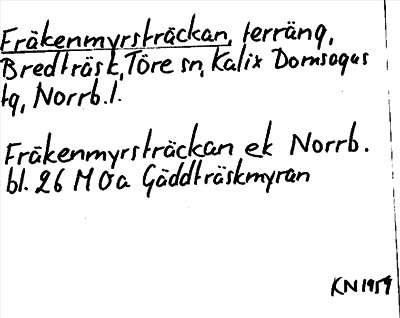 Fräkenmyrsträckan, terräng,
Bredträsk, Töre sn, Kalix Domsagas
tg, Norrb. l.
Fräkenmyrsträckan ek Norrb.
bl. 26 M Öa Gäddträskmyran
KN 1959